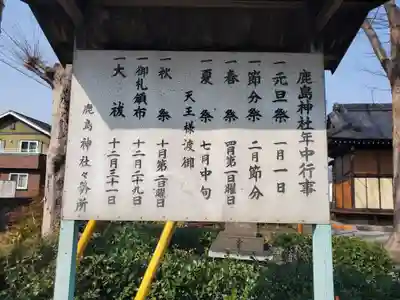 鹿島神社年中行事
一元旦祭 一月一日
一節分祭 二月節分
一春祭 四月第一日曜日
一夏祭 七月中旬
天王様渡御
一秋祭 十月第一日曜日
一御札頒布 十二月二十九日
一大祓 十二月三十一日
鹿島神社々務所